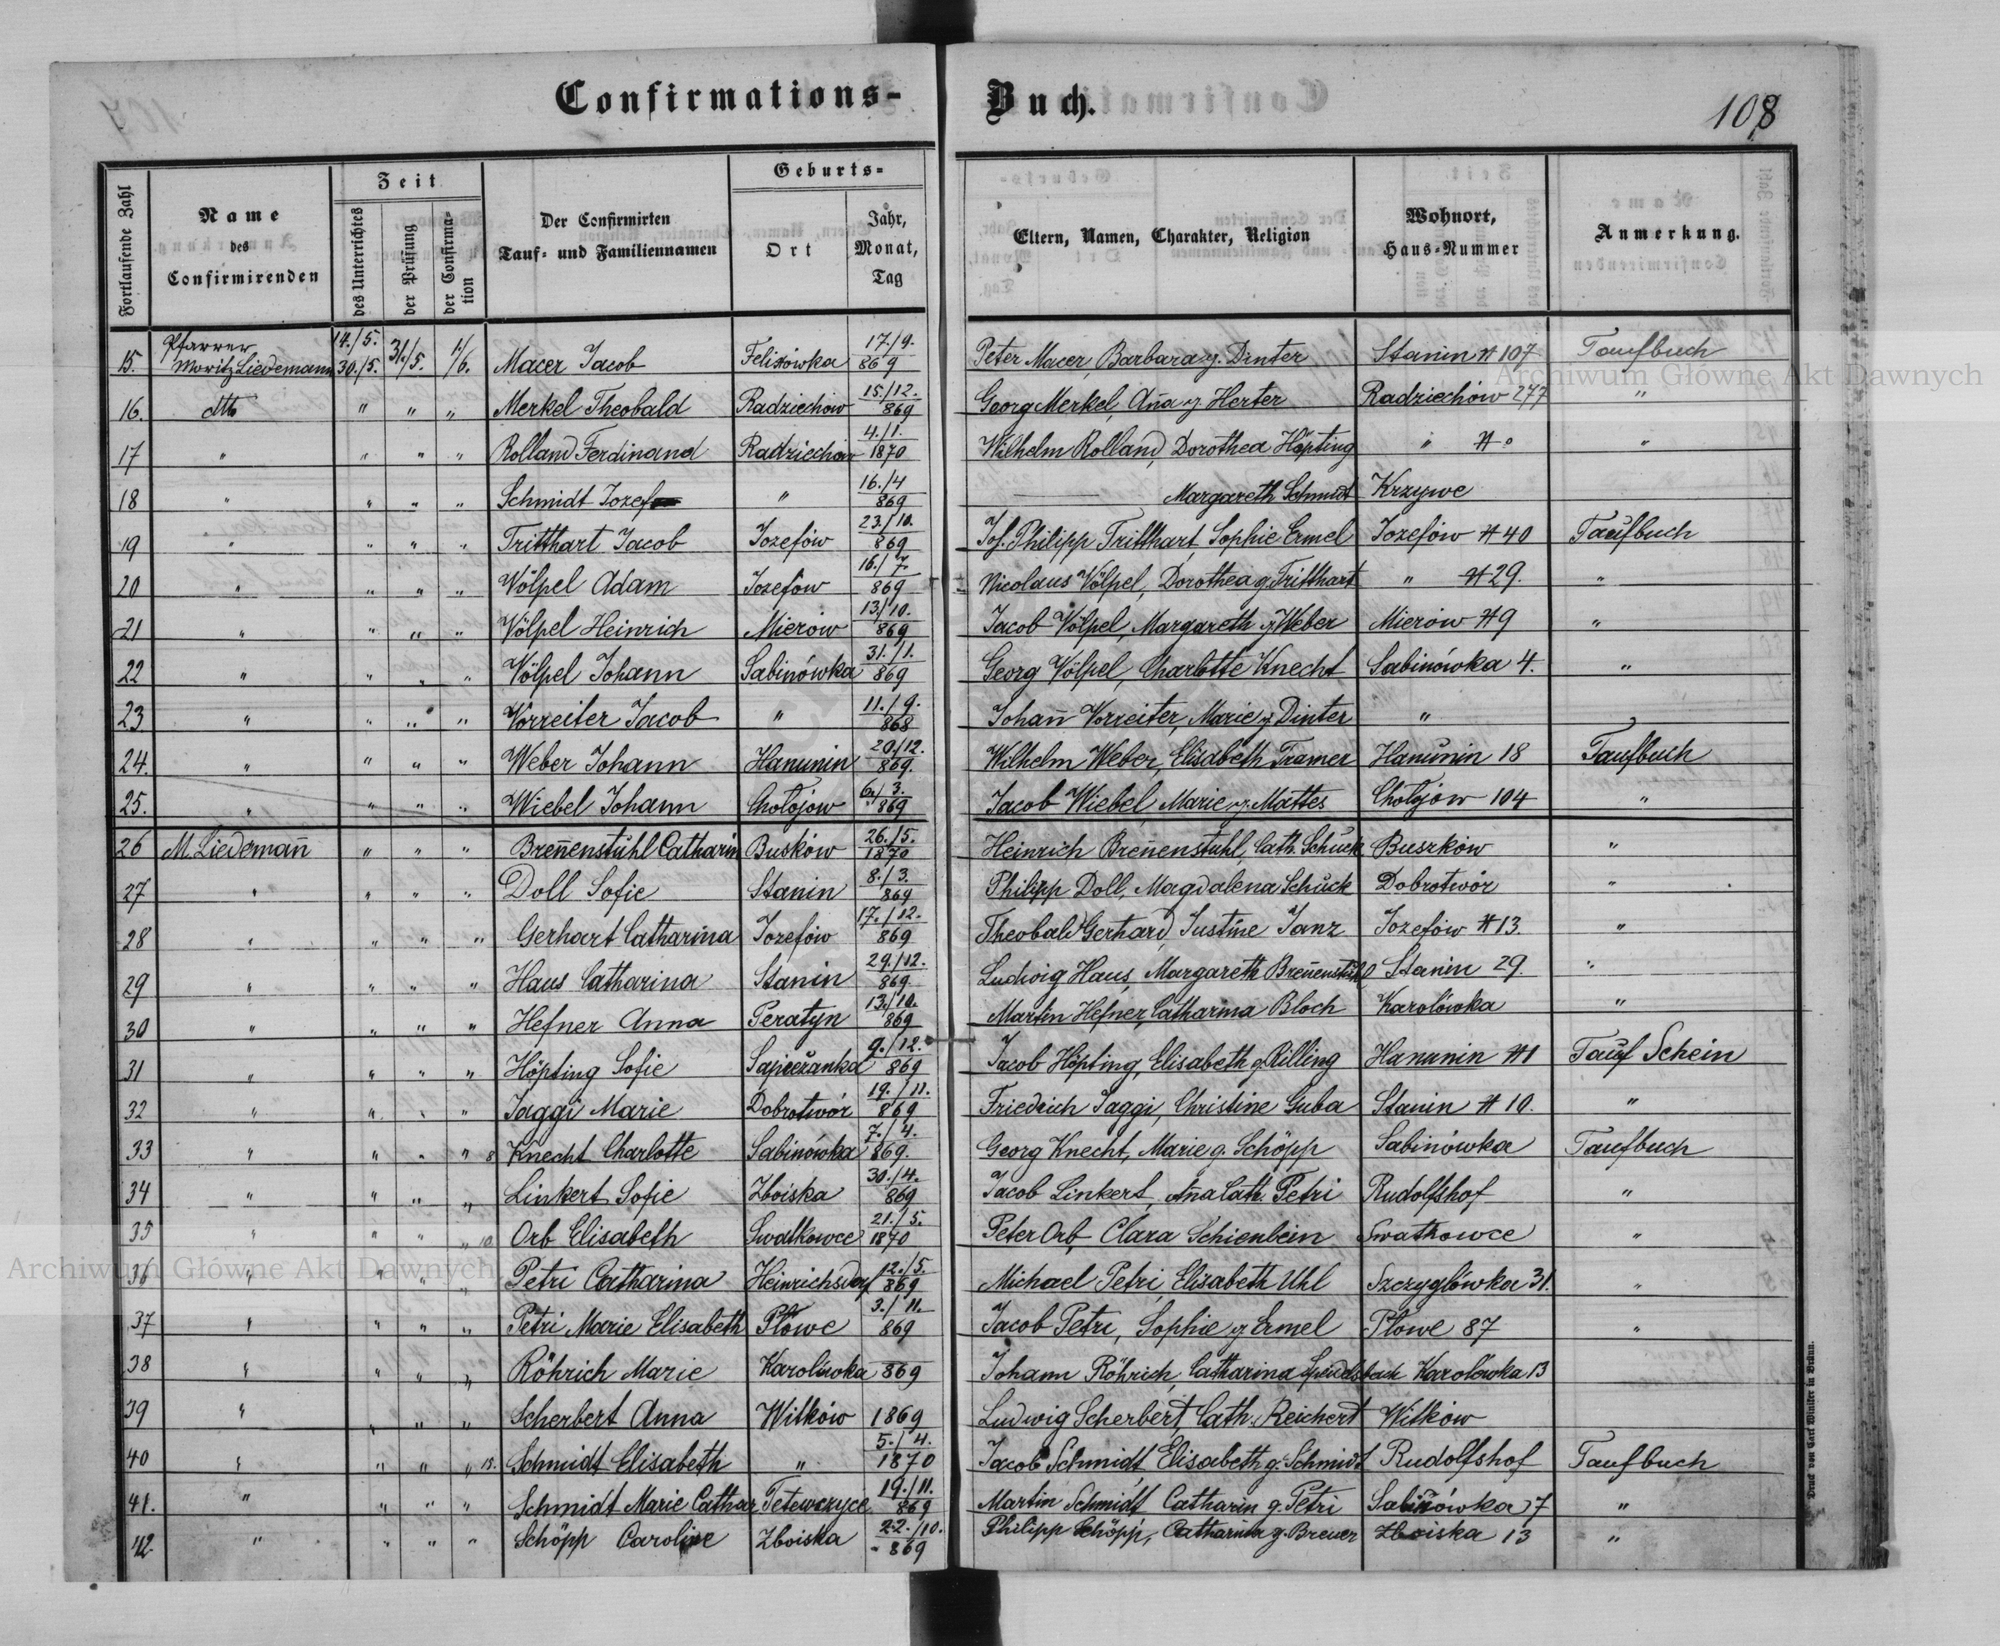 Confirmations-Buch.
108
Fortlaufende Zahl
Name des Confirmirenden
Zeit
des Unterrichtes
der Prüfung
der Confirmation
Der Confirmirten Tauf- und Familiennamen
Geburts-
Ort
Jahr, Monat, Tag
Eltern, Namen, Charakter, Religion
Wohnort, Haus-Nummer
Anmerkung.
15. Pfarrer Moritz Liedemann 14./5. 30./5. 31./5. 1/6. Macer Jacob Felizówka 17./9. 869 Peter Macer, Barbara g. Dinter Stanin # 107 Taufbuch
16. dtto " " " Merkel Theobald Radziechów 15./12. 869 Georg Merkel, Aña g. Herter Radziechów 277 "
17 " " " " Rolland Ferdinand Radziechów 4./1. 1870 Wilhelm Rolland, Dorothea Höpting " # o "
18 " " " " Schmidt Jozef " 16./4 869 Margareth Schmidt Krzywe
19 " " " " Tritthart Jacob Jozefów 23./10. 869 Jof. Philipp Tritthart, Sophie Ermel Jozefów # 40 Taufbuch
20 " " " " Völpel Adam Jozefów 16./7. 869 Nicolaus Völpel, Dorothea g. Tritthart " # 29. "
21 " " " " Völpel Heinrich Mierów 13./10. 869 Jacob Völpel, Margareth g. Weber Mierów # 9 "
22 " " " " Völpel Johann Sabinówka 31./1. 869 Georg Völpel, Charlotte Knecht Sabinówka 4. "
23 " " " " Vorreiter Jacob " 11./9. 868 Johañ Vorreiter, Marie g. Dinter "
24. " " " " Weber Johann Hanunin 20./12. 869. Wilhelm Weber, Elisabeth Tramer Hanunin 18 Taufbuch
25. " " " " Wiebel Johann Chołojów 6./3. 869 Jacob Wiebel, Marie g. Mattes Chołojów 104 "
26 M. Liedemañ " " " Breñenstuhl Catharin Busków 26./5. 1870 Heinrich Breñenstuhl, Cath. Schuck Buszków "
27 " " " " Doll Sofie Stanin 8./3. 869 Philipp Doll, Magdalena Schuck Dobrotwór "
28 " " " " Gerhart Catharina Jozefów 17./12. 869 Theobald Gerhard, Justine Janz Jozefów # 13 "
29 " " " " Haus Catharina Stanin 29./12. 869 Ludwig Haus, Margareth Breñenstuhl Stanin 29. "
30 " " " " Hefner Anna Peratyn 13./10. 869 Martin Hefner, Catharina Bloch Karolówka "
31 " " " " Höpting Sofie Sapieżanka 9./12. 869 Jacob Höpting, Elisabeth g. Rilling Hanunin # 1 Tauf Schein
32 " " " " Jaggi Marie Dobrotwór 19./11. 869 Friedrich Jaggi, Christine Guba Stanin # 10. "
33 " " " " 8 Knecht Charlotte Sabinówka 7./4. 869. Georg Knecht, Marie g. Schöpp Sabinówka Taufbuch
34 " " " " Linkert Sofie Zboiska 30./4. 869 Jacob Linkert, Aña Cath. Petri Rudolfshof "
35 " " " " 10. Orb Elisabeth Swatkowce 21./5. 1870 Peter Orb, Clara Schienbein Swatkowce "
36 " " " " Petri Catharina Heinrichsdorf 12./5. 869 Michael Petri, Elisabeth Uhl Szczyglówka 31. "
37 " " " " Petri Marie Elisabeth Płowe 3./11. 869 Jacob Petri, Sophie g. Ermel Płowe 87 "
38 " " " " Röhrich Marie Karolówka 869 Johann Röhrich, Catharina Karolówka 13
39 " " " " Scherbert Anna Witków 1869 Ludwig Scherbert, Cath. Reichert Witków
40 " " " " 15. Schmidt Elisabeth " 5./4. 1870 Jacob Schmidt Elisabeth g. Schmidt Rudolfshof Taufbuch
41. " " " " Schmidt Marie Cathar Tetewczyce 19./11. 869 Martin Schmidt Catharin g. Petri Sabinówka 7 "
42 " " " " Schöpp Caroline Zboiska 22./10. 869 Philipp Schöpp, Catharina g. Breuer Zboiska 13 "
Druck von Carl Winiker in Brünn.
Archiwum Główne Akt Dawnych
Archiwum Główne Akt Dawnych